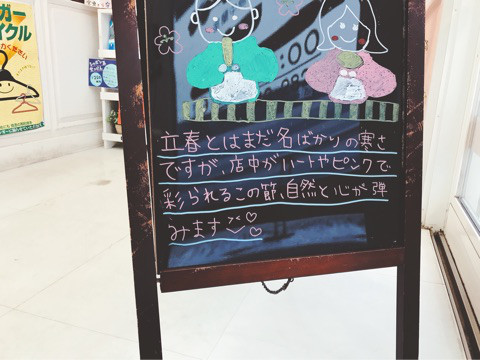 ガー
イクル
立春とはまだ名ばかりの寒さ
ですが、店中がハートやピンクで
彩られるこの節、自然と心が弾
みます♡♡